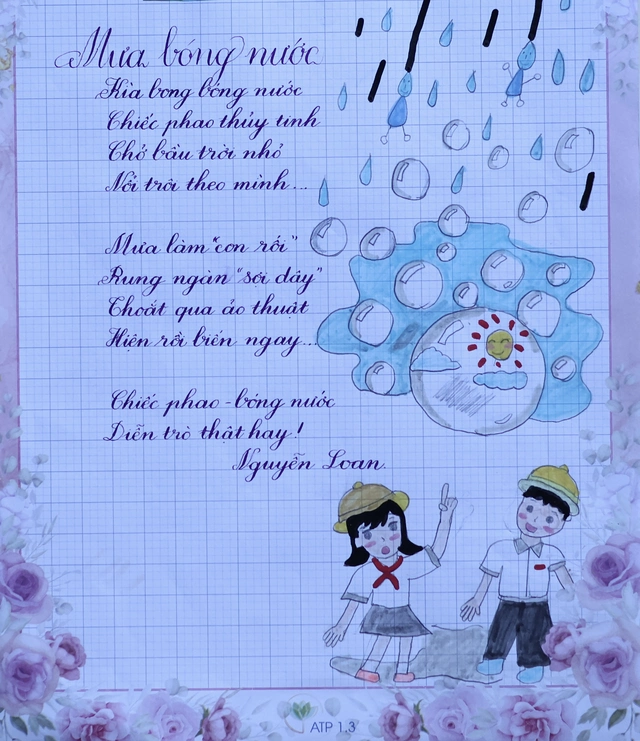 Mưa bóng nước
Kìa bong bóng nước
Chiếc phao thủy tinh
Chở bầu trời nhỏ
Nổi trôi theo mình...
Mưa làm "con rối"
Rung ngàn "sợi dây"
Thoắt qua ảo thuật
Hiện rồi biến ngay...
Chiếc phao - bóng nước
Diễn trò thật hay!
Nguyễn Loan
ATP 1.3